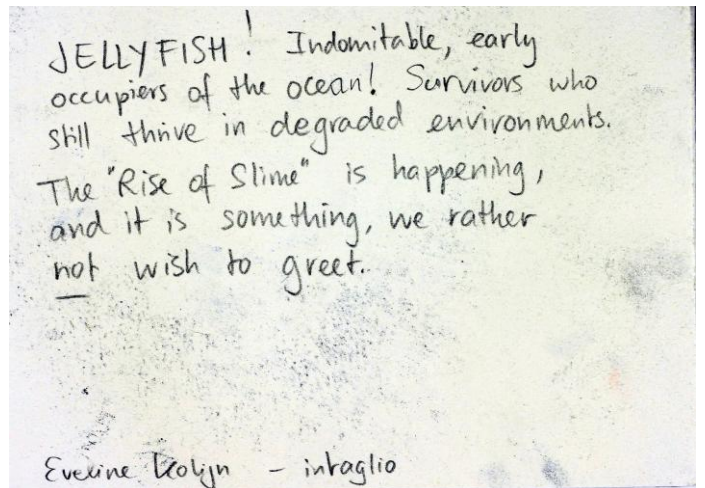 JELLYFISH! Indomitable, early
occupiers of the ocean! Survivors who
still thrive in degraded environments.
The "Rise of Slime" is happening,
and it is something, we rather
not wish to greet.
Eveline Kolijn - intaglio